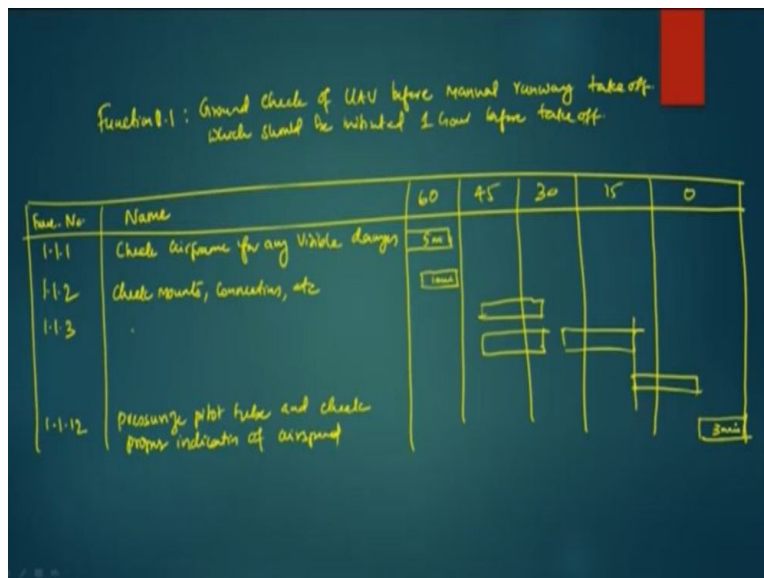 Function 1.1 : Ground Check of UAV before Manual runway take off.
which should be initiated 1 hour before take off.
Func. No. Name 60 45 30 15 0
1.1.1 Check airframe for any visible damages 5 m
1.1.2 Check mounts, Connections, etc
1.1.3
1.1.12 pressurize pitot tube and check
proper indication of airspeed 3 min